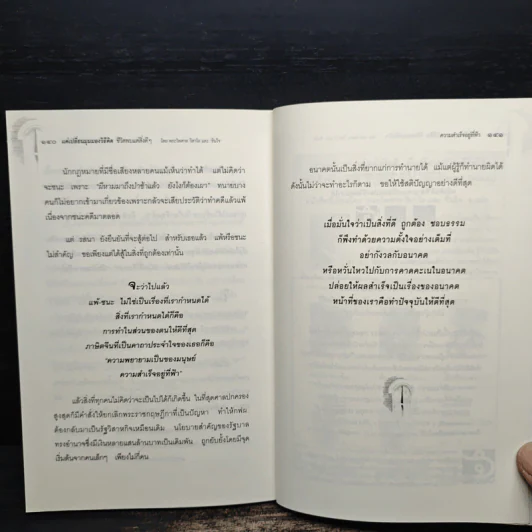 ๑๔๐ แค่เปลี่ยนมุมมองวิธีคิด ชีวิตจะแค่ดีดี๊ดี
นักกฎหมายที่มีชื่อเสียงหลายคนแม้เห็นว่าทำได้ แต่ไม่คิดว่า
จะชนะ เพราะ “มีหามมาถึงป่าช้าแล้ว ยังไงก็ต้องเผา” ทนายบาง
คนก็ไม่อยากเข้ามาเกี่ยวข้องเพราะกลัวจะเสียประวัติว่าทำคดีแล้วแพ้
เนื่องจากชนะคดีมาตลอด
แต่ รสนา ยังยืนยันที่จะสู้ต่อไป สำหรับเธอแล้ว แพ้หรือชนะ
ไม่สำคัญ ขอเพียงแต่ได้สู้ในสิ่งที่ถูกต้องเท่านั้น
จะว่าไปแล้ว
แพ้-ชนะ ไม่ใช่เรื่องที่เรากำหนดได้
สิ่งที่เรากำหนดได้ก็คือ
การทำในส่วนของตนให้ดีที่สุด
ภาษิตจีนที่เป็นคาถาประจำใจของเธอก็คือ
“ความพยายามเป็นของมนุษย์
ความสำเร็จอยู่ที่ฟ้า”
แล้วสิ่งที่ทุกคนไม่คิดว่าจะเป็นไปได้ก็เกิดขึ้น ในที่สุดศาลปกครอง
สูงสุดก็มีคำสั่งให้ยกเลิกพระราชกฤษฎีกาที่เป็นปัญหา ทำให้กฟผ
ต้องกลับมาเป็นรัฐวิสาหกิจเหมือนเดิม นโยบายสำคัญของรัฐบาล
ทรงอำนาจซึ่งมีเงินหลายแสนล้านบาทเป็นเดิมพัน ถูกยับยั้งโดยมีจุด
เริ่มต้นจากคนเล็กๆ เพียงไม่กี่คน
ความสำเร็จอยู่ที่ฟ้า ๑๔๑
อนาคตนั้นเป็นสิ่งที่ยากแก่การทำนายได้ แม้แต่ผู้รู้ก็ทำนายผิดได้
ดังนั้นไม่ว่าจะทำอะไรก็ตาม ขอให้ใช้สติปัญญาอย่างดีที่สุด
เมื่อมั่นใจว่าเป็นสิ่งที่ดี ถูกต้อง ชอบธรรม
ก็พึงทำด้วยความตั้งใจอย่างเต็มที่
อย่ากังวลกับอนาคต
หรือหวั่นไหวไปกับการคาดคะเนในอนาคต
ปล่อยให้ผลสำเร็จเป็นเรื่องของอนาคต
หน้าที่ของเราคือทำปัจจุบันให้ดีที่สุด